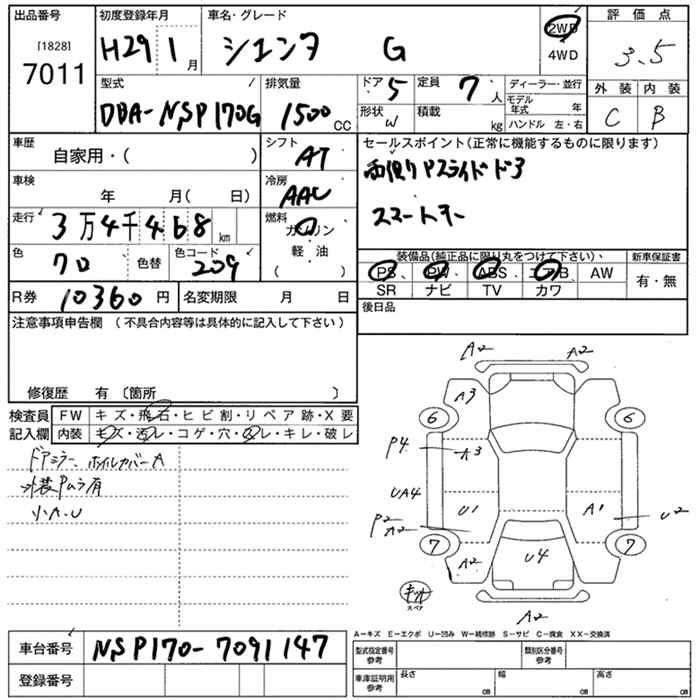 出品番号
[1828]
7011
初度登録年月
H29 1 月
車名・グレード
シエンタ G
2WD
4WD
評価点
3.5
型式
DBA-NSP170G
排気量
1500 CC
ドア 5
定員 7 人
形状 W
積載 kg
ディーラー・並行
モデル年式 年
ハンドル 左・右
外装 内装
C B
車歴
自家用・( )
シフト
AT
セールスポイント(正常に機能するものに限ります)
両側Pスライドドア
スマートキー
車検
年 月( 日)
冷房
AAC
走行
3万4千468 km
燃料
ガソリン
軽・油
( )
色
クロ 色替
色コード
209
装備品(純正品に限り丸をつけて下さい)
新車保証書
PS PW ABS エアB AW
SR ナビ TV カワ
有・無
R券 10360円
名変期限 月 日
後日品
注意事項申告欄 (不具合内容等は具体的に記入して下さい)
修復歴 有 〔箇所 〕
検査員
記入欄
FW キズ・飛石・ヒビ割・リペア跡・X要
内装 キズ・汚レ・コゲ・穴・スレ・キレ・破レ
ドアミラー、ホイルカバーA
外装Pムラ有
小A・U
A2 A2
A3
6 6
P4 A3
UA4
U1 A1 U2
P2
A2
7 7
A2 U4
キット
スペア
A2
A－キズ E－エクボ U－凹み W－補修跡 S－サビ C－腐食 XX－交換済
車台番号
NSP170-7091147
登録番号
型式指定番号
参考
類別区分番号
参考
車庫証明用
参考
長さ cm
幅 cm
高さ cm